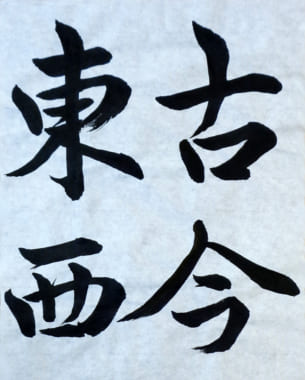 古今
東西